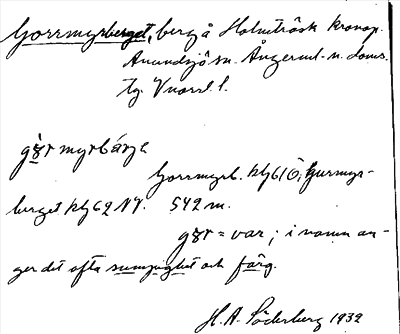 Gorrmyrberget, berg å Holmträsk kronop.
Anundsjö sn. Ångerml. n. doms.
tg. l.
gɷ̀r myrbárjə
Gorrmyrb. kbl 61 Ö, Gurmyr-
berget kbl 62 NV. 542 m.
gɷr = var; i namn an-
ger det ofta sumpighet och färg.
H. A. Söderberg 1932